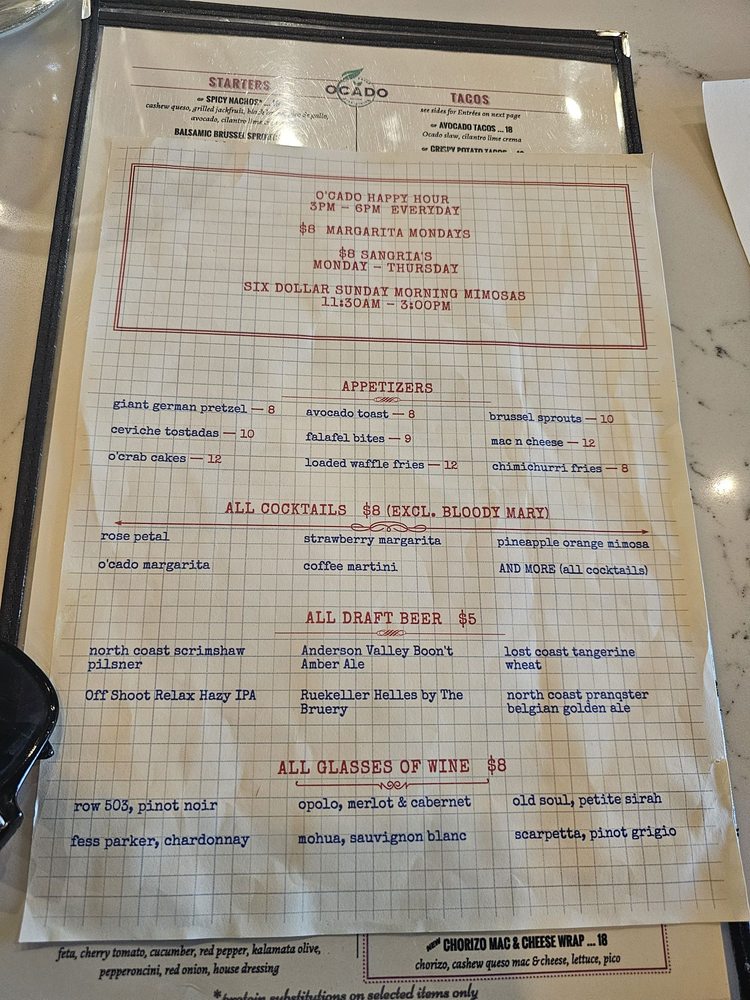 STARTERS
OCADO
TACOS
SPICY NACHOS*
cashew queso, grilled jackfruit,
avocado, cilantro lime
BALSAMIC BRUSSEL SPROUTS
see sides for Entrées on next page
AVOCADO TACOS ... 18
Ocado slaw, cilantro lime crema
CRISPY POTATO TACOS
O'CADO HAPPY HOUR
3PM – 6PM EVERYDAY
$8 MARGARITA MONDAYS
$8 SANGRIA'S
MONDAY – THURSDAY
SIX DOLLAR SUNDAY MORNING MIMOSAS
11:30AM – 3:00PM
APPETIZERS
giant german pretzel — 8
avocado toast — 8
brussel sprouts — 10
ceviche tostadas — 10
falafel bites — 9
mac n cheese — 12
o'crab cakes — 12
loaded waffle fries — 12
chimichurri fries — 8
ALL COCKTAILS $8 (EXCL. BLOODY MARY)
rose petal
strawberry margarita
pineapple orange mimosa
o'cado margarita
coffee martini
AND MORE (all cocktails)
ALL DRAFT BEER $5
north coast scrimshaw
pilsner
Anderson Valley Boon't
Amber Ale
lost coast tangerine
wheat
Off Shoot Relax Hazy IPA
Ruekeller Helles by The
Bruery
north coast pranqster
belgian golden ale
ALL GLASSES OF WINE $8
row 503, pinot noir
opolo, merlot & cabernet
old soul, petite sirah
fess parker, chardonnay
mohua, sauvignon blanc
scarpetta, pinot grigio
feta, cherry tomato, cucumber, red pepper, kalamata olive,
pepperoncini, red onion, house dressing
NEW CHORIZO MAC & CHEESE WRAP ... 18
chorizo, cashew queso mac & cheese, lettuce, pico
*protein substitutions on selected items only